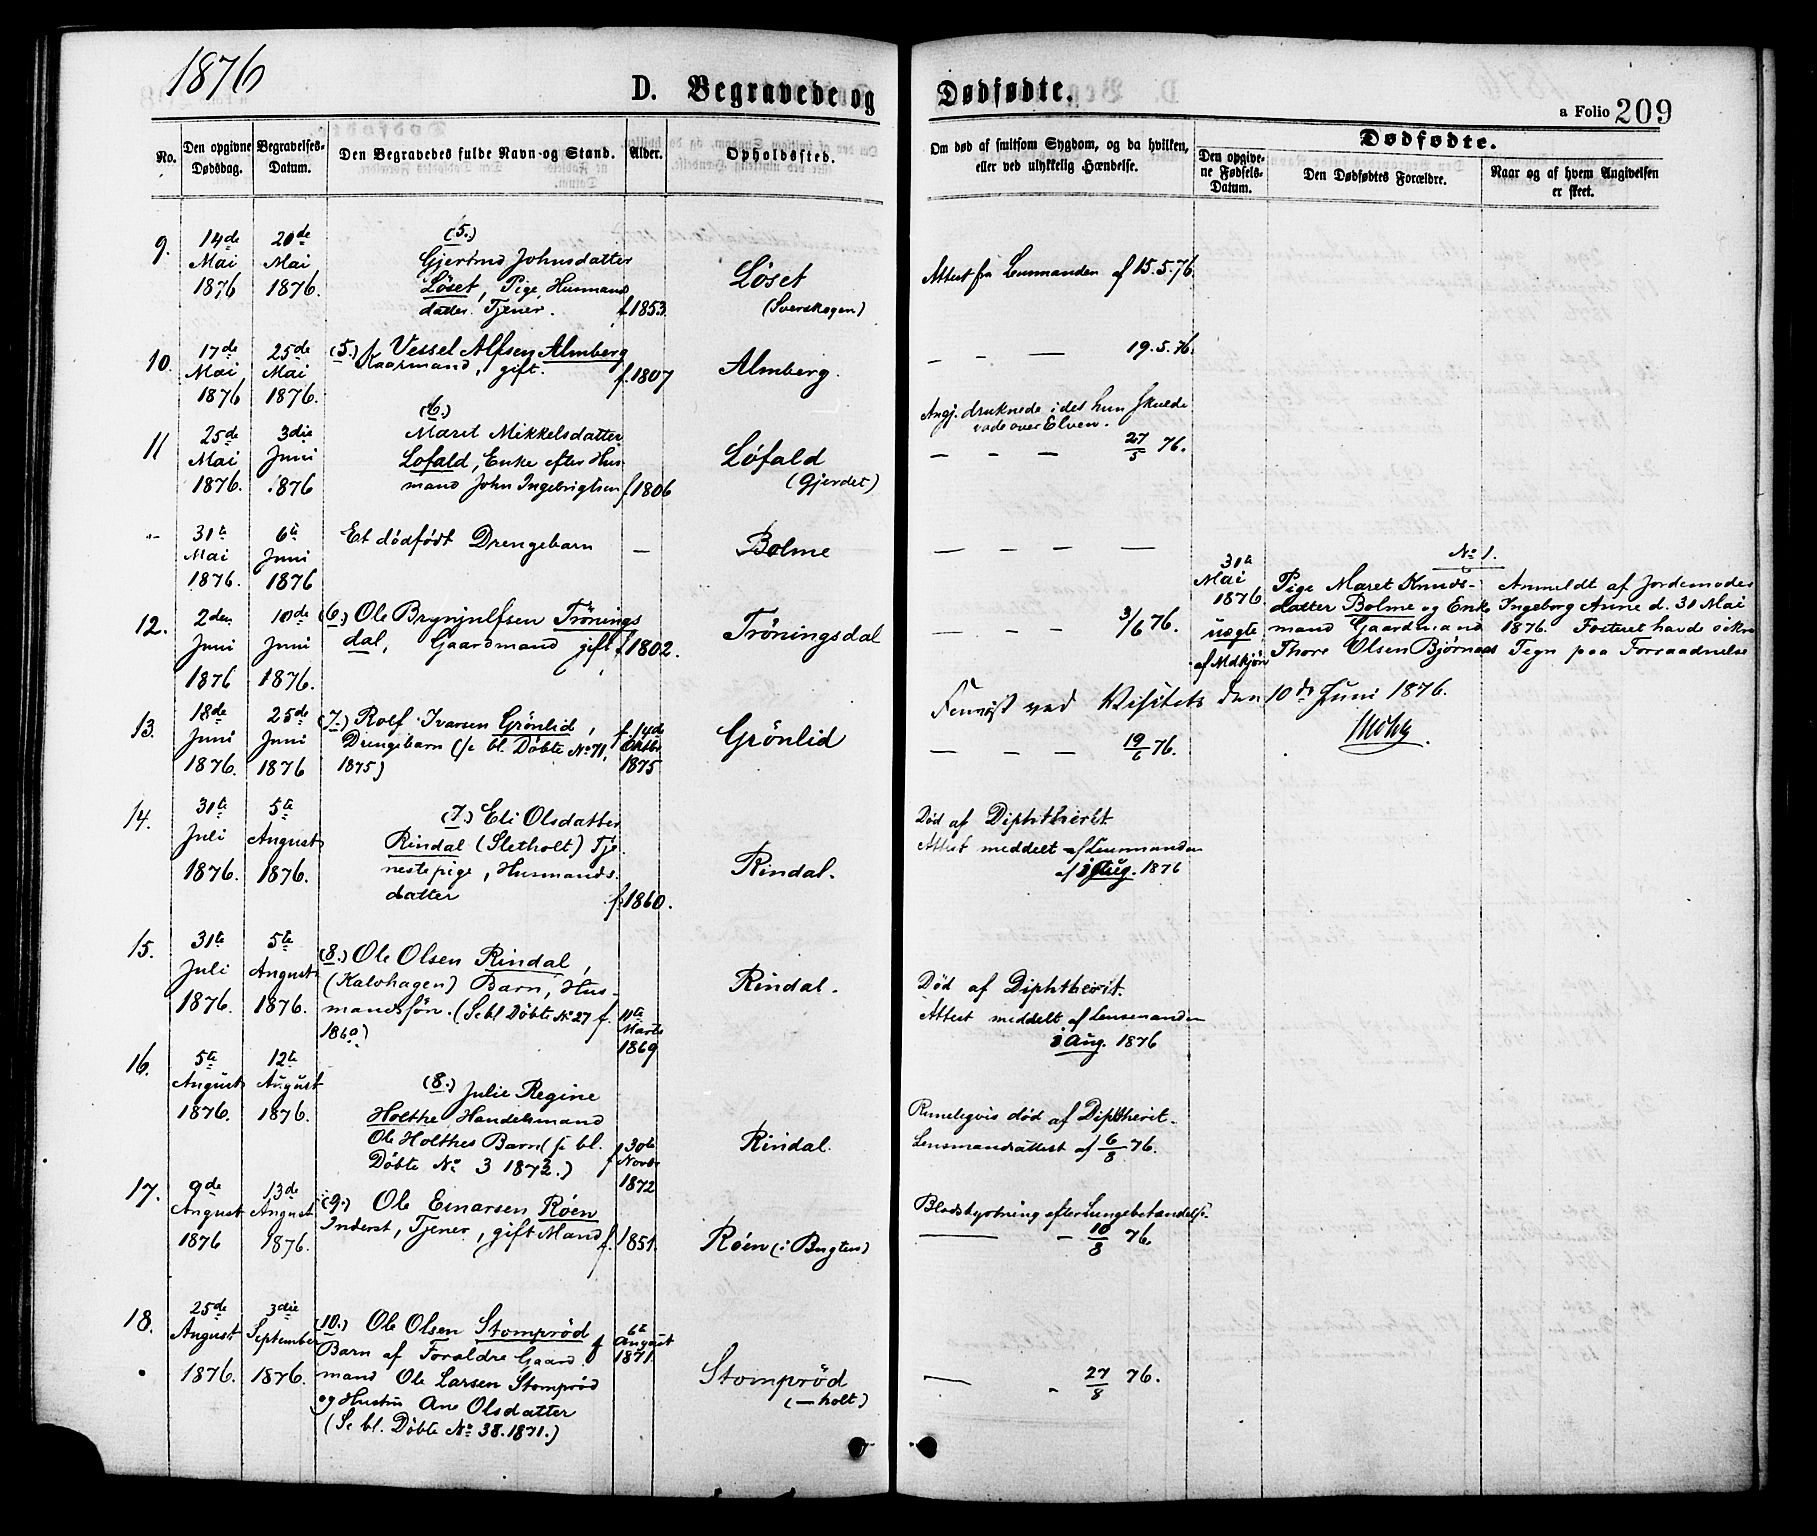 1876
D. Begravede og Dødfødte.
a Folio 209
No.
Den opgivne Dødsdag.
Begravelses-Datum.
Den Begravedes fulde Navn og Stand.
Alder.
Opholdssted.
Om død af smitsom Sygdom, og da hvilken, eller ved ulykkelig Hændelse.
Dødfødte.
Den opgivne Fødsels-Datum.
Den Dødfødtes Forældre.
Naar og af hvem Angivelsen er skeet.
9. 14de Mai 1876 20de Mai 1876.
(5.)
Gjertrud Johnsdatter
Löset, Pige, Husmands
datter. Tjener. f. 1853.
Löset
(Sverskogen)
Attest fra Lensmanden af 15.5.76.
10. 17de Mai 1876 25de Mai 1876.
(5.) Vessel Alfsen Almberg
Kaarmand, gift. f. 1807
Almberg.
— — — 19.5.76.
11 25de Mai 1876. 3die Juni 1876
(6.)
Maret Mikkelsdatter
Lofald, Enke efter Hus-
mand John Ingebrigtsen f. 1806
Löfald
(Gjerdet)
Angj. druknede idet hun skulde
vade over Elven.
— — — 27/5 76.
„ 31te Mai 1876. 6te Juni 1876
Et dödfödt Drengebarn —
Bolme
— — — —
31te Mai 1876
uægte
af Mdkjön
No 1.
Pige Maret Knuds-
datter Bolme og Enke
mand Gaardmand
Thore Olsen Bjørnaas
Anmeldt af Jordemoder
Ingeborg Anne d. 31 Mai
1876. Fosteret havde sikre
Tegn paa Forraadnelse
12. 2den Juni 1876 10de Juni 1876.
(6.) Ole Brynjulfsen Trönings
dal, Gaardmand gift f. 1802.
Tröningsdal
— — — 3/6 76.
ved Visitats den 10de Juni 1876.
13. 18de Juni 1876. 25de Juni 1876
(7.) Rolf Ivarsen Grönlid,
Drengebarn (se bl. Döbte No 71,
1875)
f. 14de Oktbr 1875
Grönlid
— — — 19/6 76.
14. 31te Juli 1876. 5te August 1876.
(7.) Eli Olsdatter
Rindal (Sletholt) Tje-
nestepige, Husmands
datter f. 1860.
Rindal.
Död af Diphtherit
Attest meddelt af Lensmanden
af Aug. 1876
15. 31te Juli 1876. 5te August 1876.
(8.) Ole Olsen Rindal,
(Kalvhagen) Barn, Hus-
mandssön. (Se bl Döbte No 27
1869)
f. 11te Marts 1869
Rindal.
Död af Diphtherit.
Attest meddelt af Lensmanden
Aug. 1876
16. 5te August 1876. 12te August 1876.
(8.) Julie Regine
Holthe, Handelsmand
Ole Holthes Barn (se bl.
Döbte No 3 1873.)
f. 30te Novbr 1872
Rindal.
Rimeligvis död af Diphtherit.
Lensmandsattest af 6/8 76.
17. 9de August 1876 13de August 1876.
(9.) Ole Einarsen Röen
Inderst, Tjener, gift Mand f. 1851.
Röen (i Bugten)
Blodstyrtning efter Lungebetændelse.
— — 10/8 76.
18. 25de August 1876. 3die September 1876.
(10.) Ole Olsen Stompröd
Barn af Forældre Gaard-
mand Ole Larsen Stompröd
og Hustru Ane Olsdatter
(Se bl. Döbte No 38. 1871.)
f. 6te August 1871
Stompröd
(— holt)
— — 27/8 76.